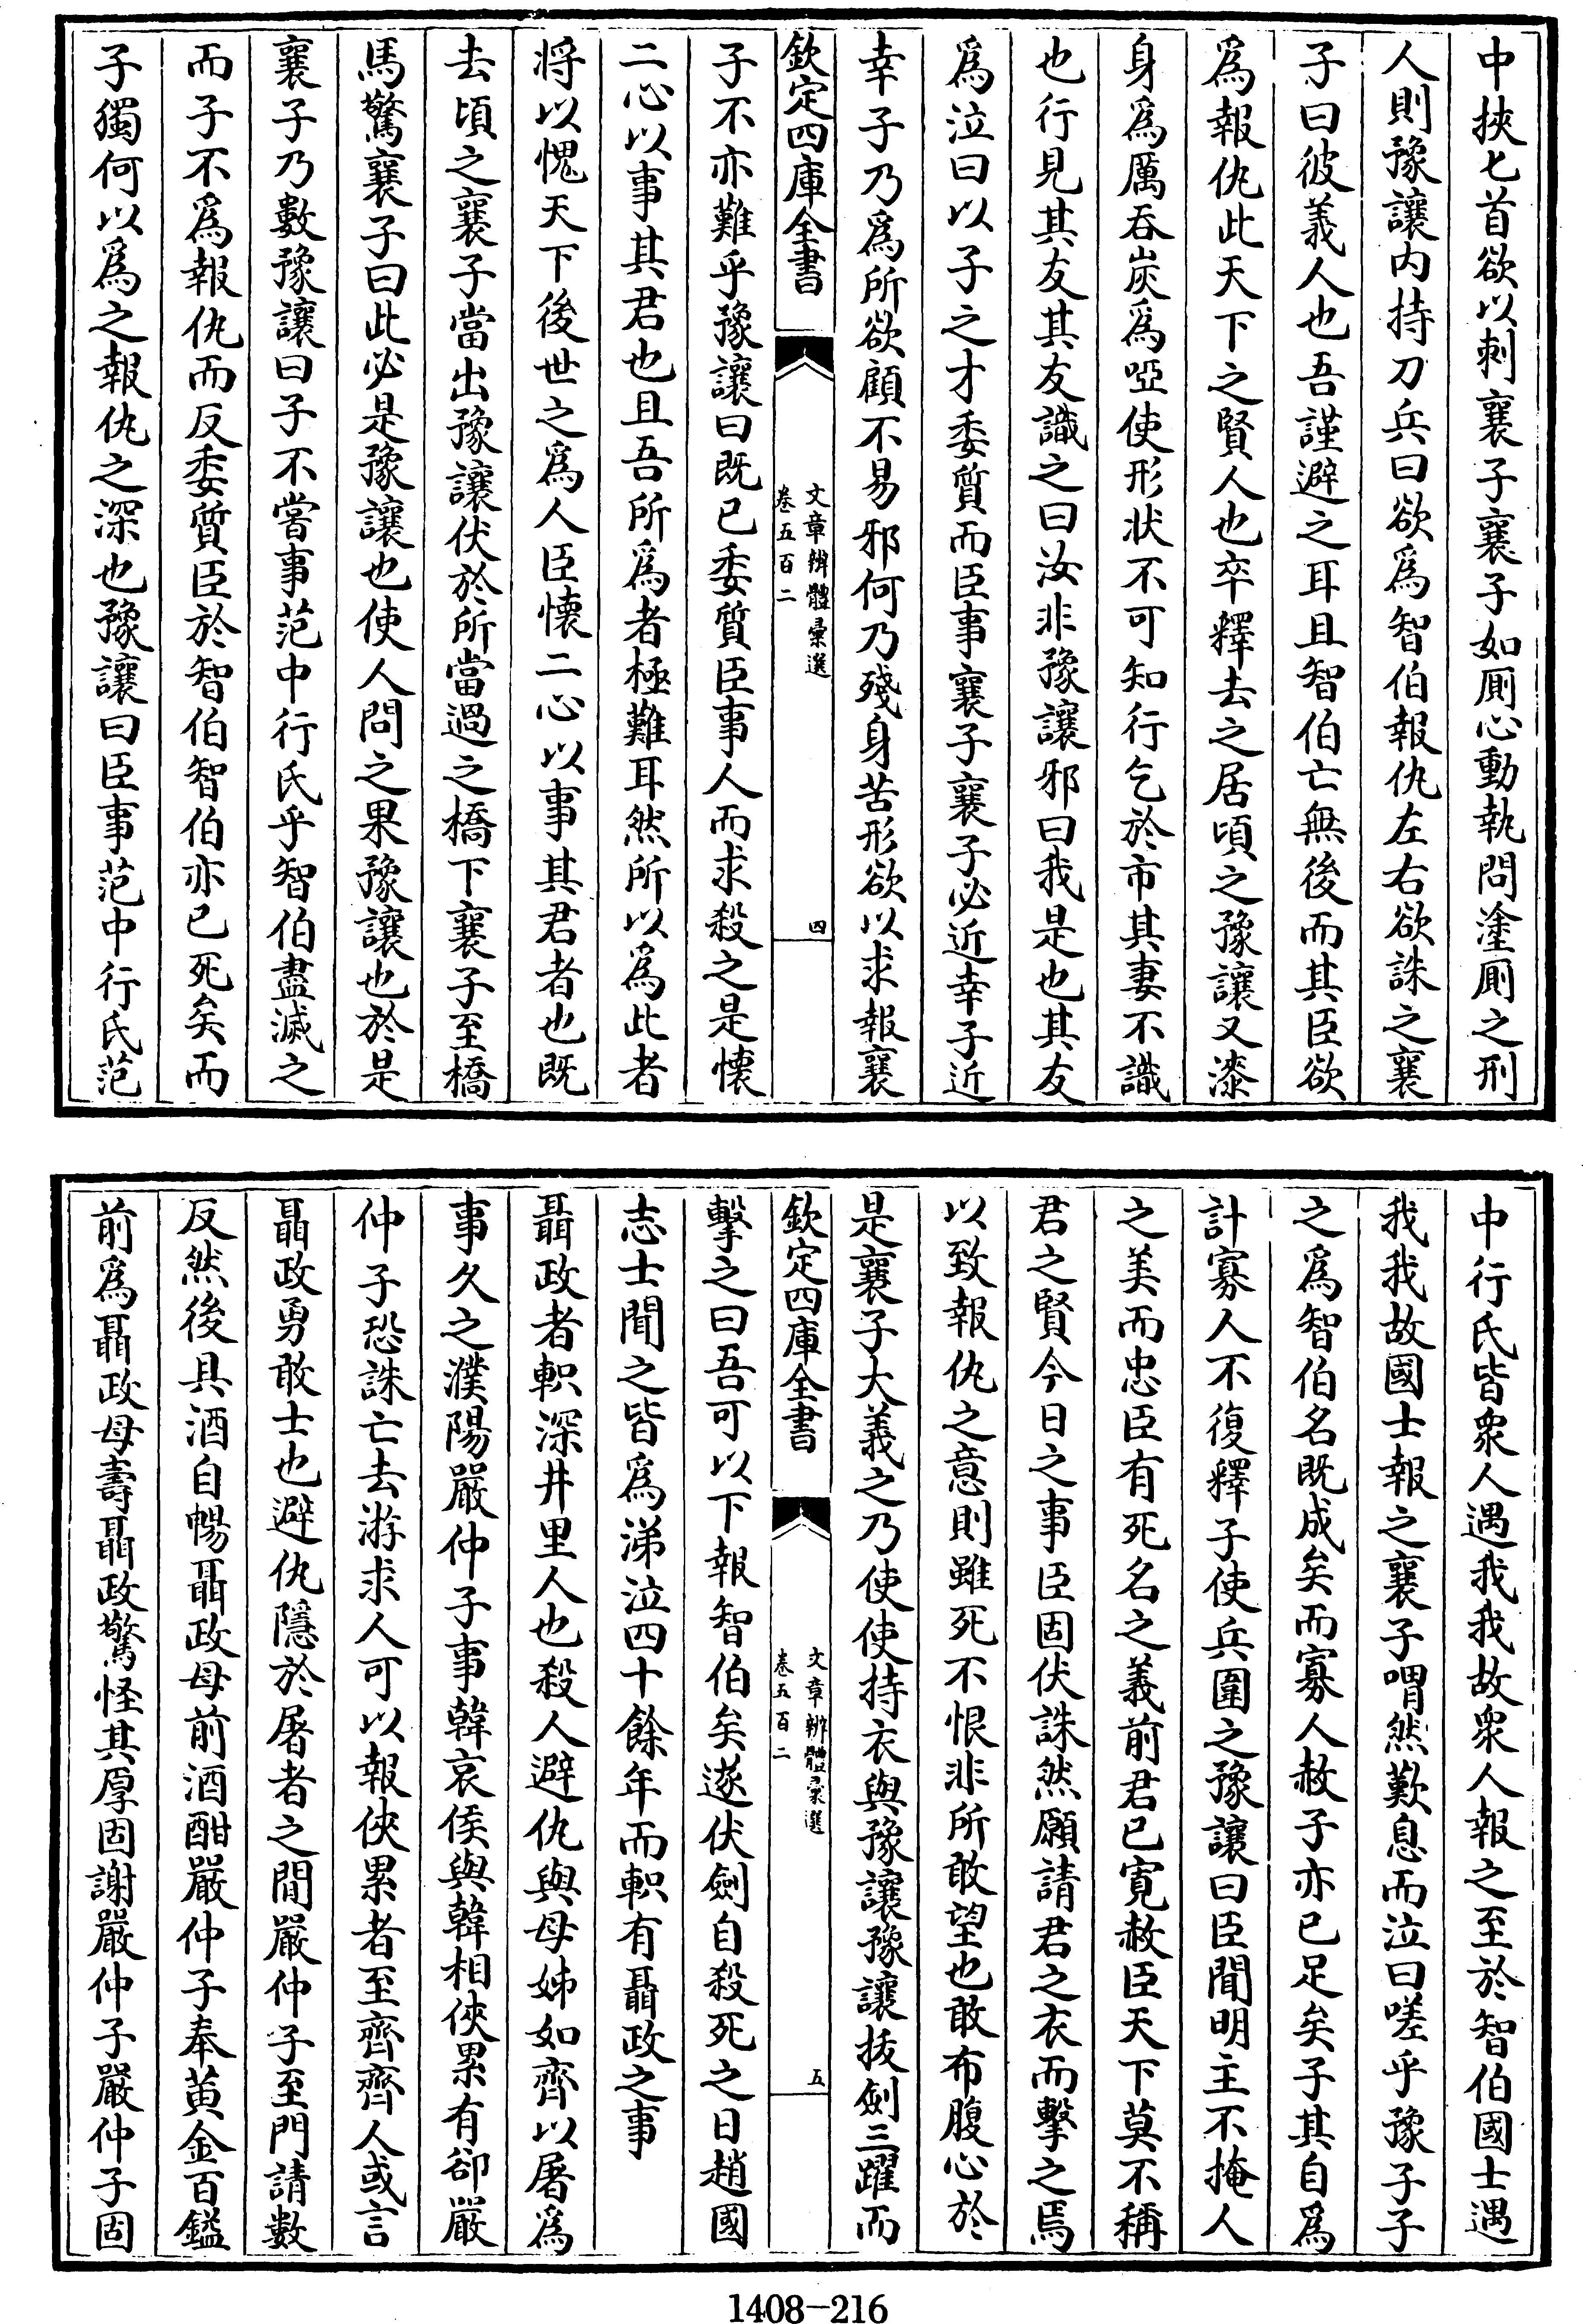 中挾匕首欲以刺襄子襄子如厠心動執問塗厠之刑
人則豫讓内持刀兵曰欲爲智伯報仇左右欲誅之襄
子曰彼義人也吾謹避之耳且智伯亡無後而其臣欲
爲報仇此天下之賢人也卒釋去之居頃之豫讓又漆
身爲厲吞炭爲啞使形状不可知行乞於市其妻不識
也行見其友其友識之曰汝非豫讓邪曰我是也其友
爲泣曰以子之才委質而臣事襄子襄子必近幸子近
幸子乃爲所欲顧不易邪何乃殘身苦形欲以求報襄
欽定四庫全書
文章辨體彙選
卷五百二
四
子不亦難乎豫讓曰既已委質臣事人而求殺之是懷
二心以事其君也且吾所爲者極難耳然所以爲此者
將以愧天下後世之爲人臣懷二心以事其君者也既
去頃之襄子當出豫讓伏於所當過之橋下襄子至橋
馬驚襄子曰此必是豫讓也使人問之果豫讓也於是
襄子乃數豫讓曰子不嘗事范中行氏乎智伯盡滅之
而子不爲報仇而反委質臣於智伯智伯亦已死矣而
子獨何以爲之報仇之深也豫讓曰臣事范中行氏范
中行氏皆衆人遇我我故衆人報之至於智伯國士遇
我我故國士報之襄子喟然歎息而泣曰嗟乎豫子子
之爲智伯名既成矣而寡人赦子亦已足矣子其自爲
計寡人不復釋子使兵圍之豫讓曰臣聞明主不掩人
之美而忠臣有死名之義前君已寛赦臣天下莫不稱
君之賢今日之事臣固伏誅然願請君之衣而擊之焉
以致報仇之意則雖死不恨非所敢望也敢布腹心於
是襄子大義之乃使使持衣與豫讓豫讓拔劍三躍而
欽定四庫全書
文章辨體彙選
卷五百二
五
擊之曰吾可以下報智伯矣遂伏劍自殺死之日趙國
志士聞之皆爲涕泣四十餘年而軹有聶政之事
聶政者軹深井里人也殺人避仇與母姊如齊以屠爲
事久之濮陽嚴仲子事韓哀侯與韓相俠累有卻嚴
仲子恐誅亡去游求人可以報俠累者至齊齊人或言
聶政勇敢士也避仇隱於屠者之間嚴仲子至門請數
反然後具酒自暢聶政母前酒酣嚴仲子奉黄金百鎰
前爲聶政母壽聶政驚怪其厚固謝嚴仲子嚴仲子固
1408-216